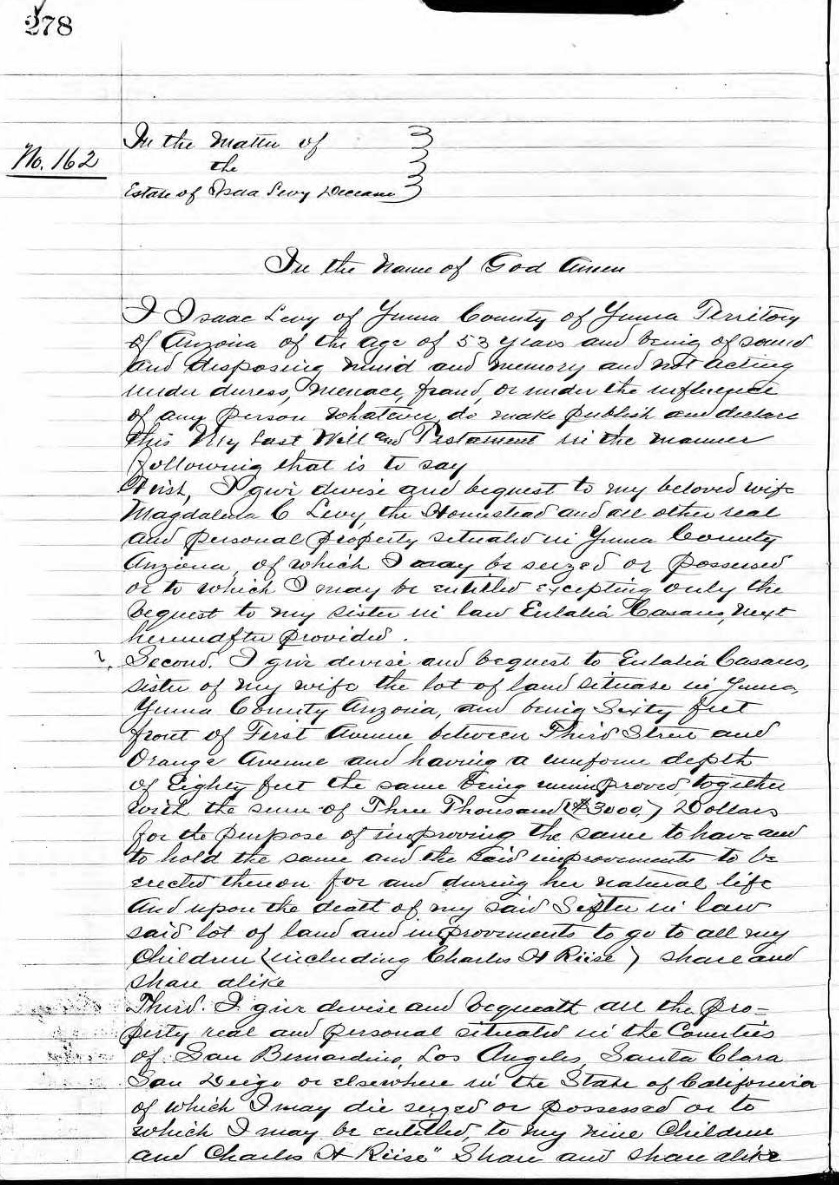 278
No. 162
In the Matter of
the
Estate of Isaa Levy Deceased
In the Name of God Amen
I Isaac Levy of Yuma County of Yuma Territory
of Arizona of the age of 53 years and being of sound
and disposing mind and memory and not acting
under duress, menace, fraud, or under the influence
of any person whatever, do make publish and declare
this My last Will and Testament in the manner
following that is to say
First, I give devise and bequest to my beloved wife
Magdalena C Levy, the Homestead and all other real
and personal property situated in Yuma County
Arizona, of which I may be seized or possessed
or to which I may be entitled excepting only the
bequest to my sister in law Eulalia Casaus, next
hereinafter provided.
Second. I give devise and bequest to Eulalia Casaus,
sister of my wife the lot of land situate in Yuma,
Yuma County Arizona, and being Sixty feet
front of First Avenue between Third Street and
Orange Avenue and having a uniform depth
of Eighty feet the same being unimproved, together
with the sum of Three Thousand ($3000) Dollars
for the purpose of improving the same to have and
to hold the same and the said improvements to be
erected thereon for and during her natural life
And upon the death of my said Sister in law
said lot of land and improvements to go to all my
Children (including Charles H Riise) share and
share alike
Third. I give devise and bequeath all the pro=
perty real and personal situated in the Counties
of San Bernardino, Los Angeles, Santa Clara
San Deigo or elsewhere in the State of California
of which I may die seized or possessed or to
which I may be entitled, to my nine Children
and Charles H Riise" Share and share alike